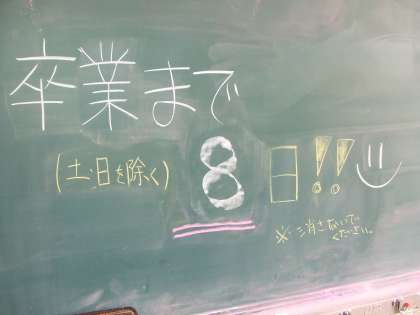 卒業まで
(土・日を除く) 8日!!
※消さないで
ください。